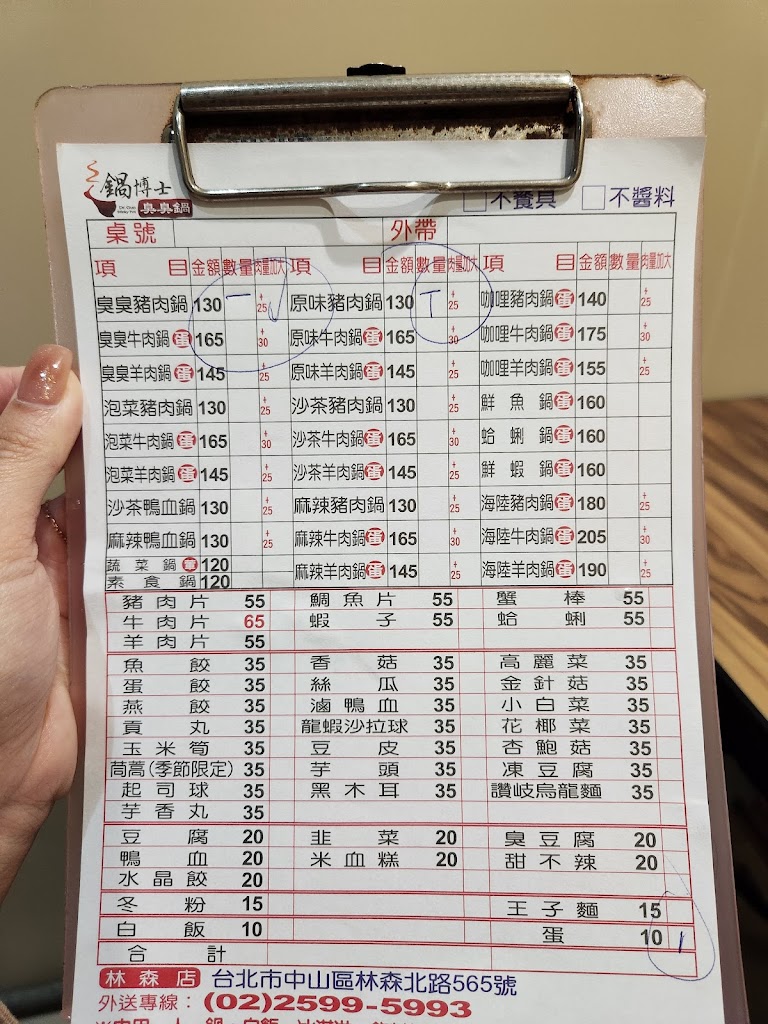 鍋博士
臭臭鍋
□不餐具 □不醬料
桌號 外帶
項目 金額 數量 肉量加大 項目 金額 數量 肉量加大 項目 金額 數量 肉量加大
臭臭豬肉鍋 130 一 +25 ✓ 原味豬肉鍋 130 T +25 咖哩豬肉鍋 蛋 140 +25
臭臭牛肉鍋 蛋 165 +30 原味牛肉鍋 蛋 165 +30 咖哩牛肉鍋 蛋 175 +30
臭臭羊肉鍋 蛋 145 +25 原味羊肉鍋 蛋 145 +25 咖哩羊肉鍋 蛋 155 +25
泡菜豬肉鍋 130 +25 沙茶豬肉鍋 130 +25 鮮魚鍋 蛋 160
泡菜牛肉鍋 蛋 165 +30 沙茶牛肉鍋 蛋 165 +30 蛤蜊鍋 蛋 160
泡菜羊肉鍋 蛋 145 +25 沙茶羊肉鍋 蛋 145 +25 鮮蝦鍋 蛋 160
沙茶鴨血鍋 130 +25 麻辣豬肉鍋 130 +25 海陸豬肉鍋 蛋 180 +25
麻辣鴨血鍋 130 +25 麻辣牛肉鍋 蛋 165 +30 海陸牛肉鍋 蛋 205 +30
蔬菜鍋 120 麻辣羊肉鍋 蛋 145 +25 海陸羊肉鍋 蛋 190 +25
素食鍋 120
豬肉片 55 鯛魚片 55 蟹棒 55
牛肉片 65 蝦子 55 蛤蜊 55
羊肉片 55
魚餃 35 香菇 35 高麗菜 35
蛋餃 35 絲瓜 35 金針菇 35
燕餃 35 滷鴨血 35 小白菜 35
貢丸 35 龍蝦沙拉球 35 花椰菜 35
玉米筍 35 豆皮 35 杏鮑菇 35
茼蒿(季節限定) 35 芋頭 35 凍豆腐 35
起司球 35 黑木耳 35 讚岐烏龍麵 35
芋香丸 35
豆腐 20 韭菜 20 臭豆腐 20
鴨血 20 米血糕 20 甜不辣 20
水晶餃 20
冬粉 15 王子麵 15
白飯 10 蛋 10 1
合計
林森店 台北市中山區林森北路565號
外送專線：(02)2599-5993